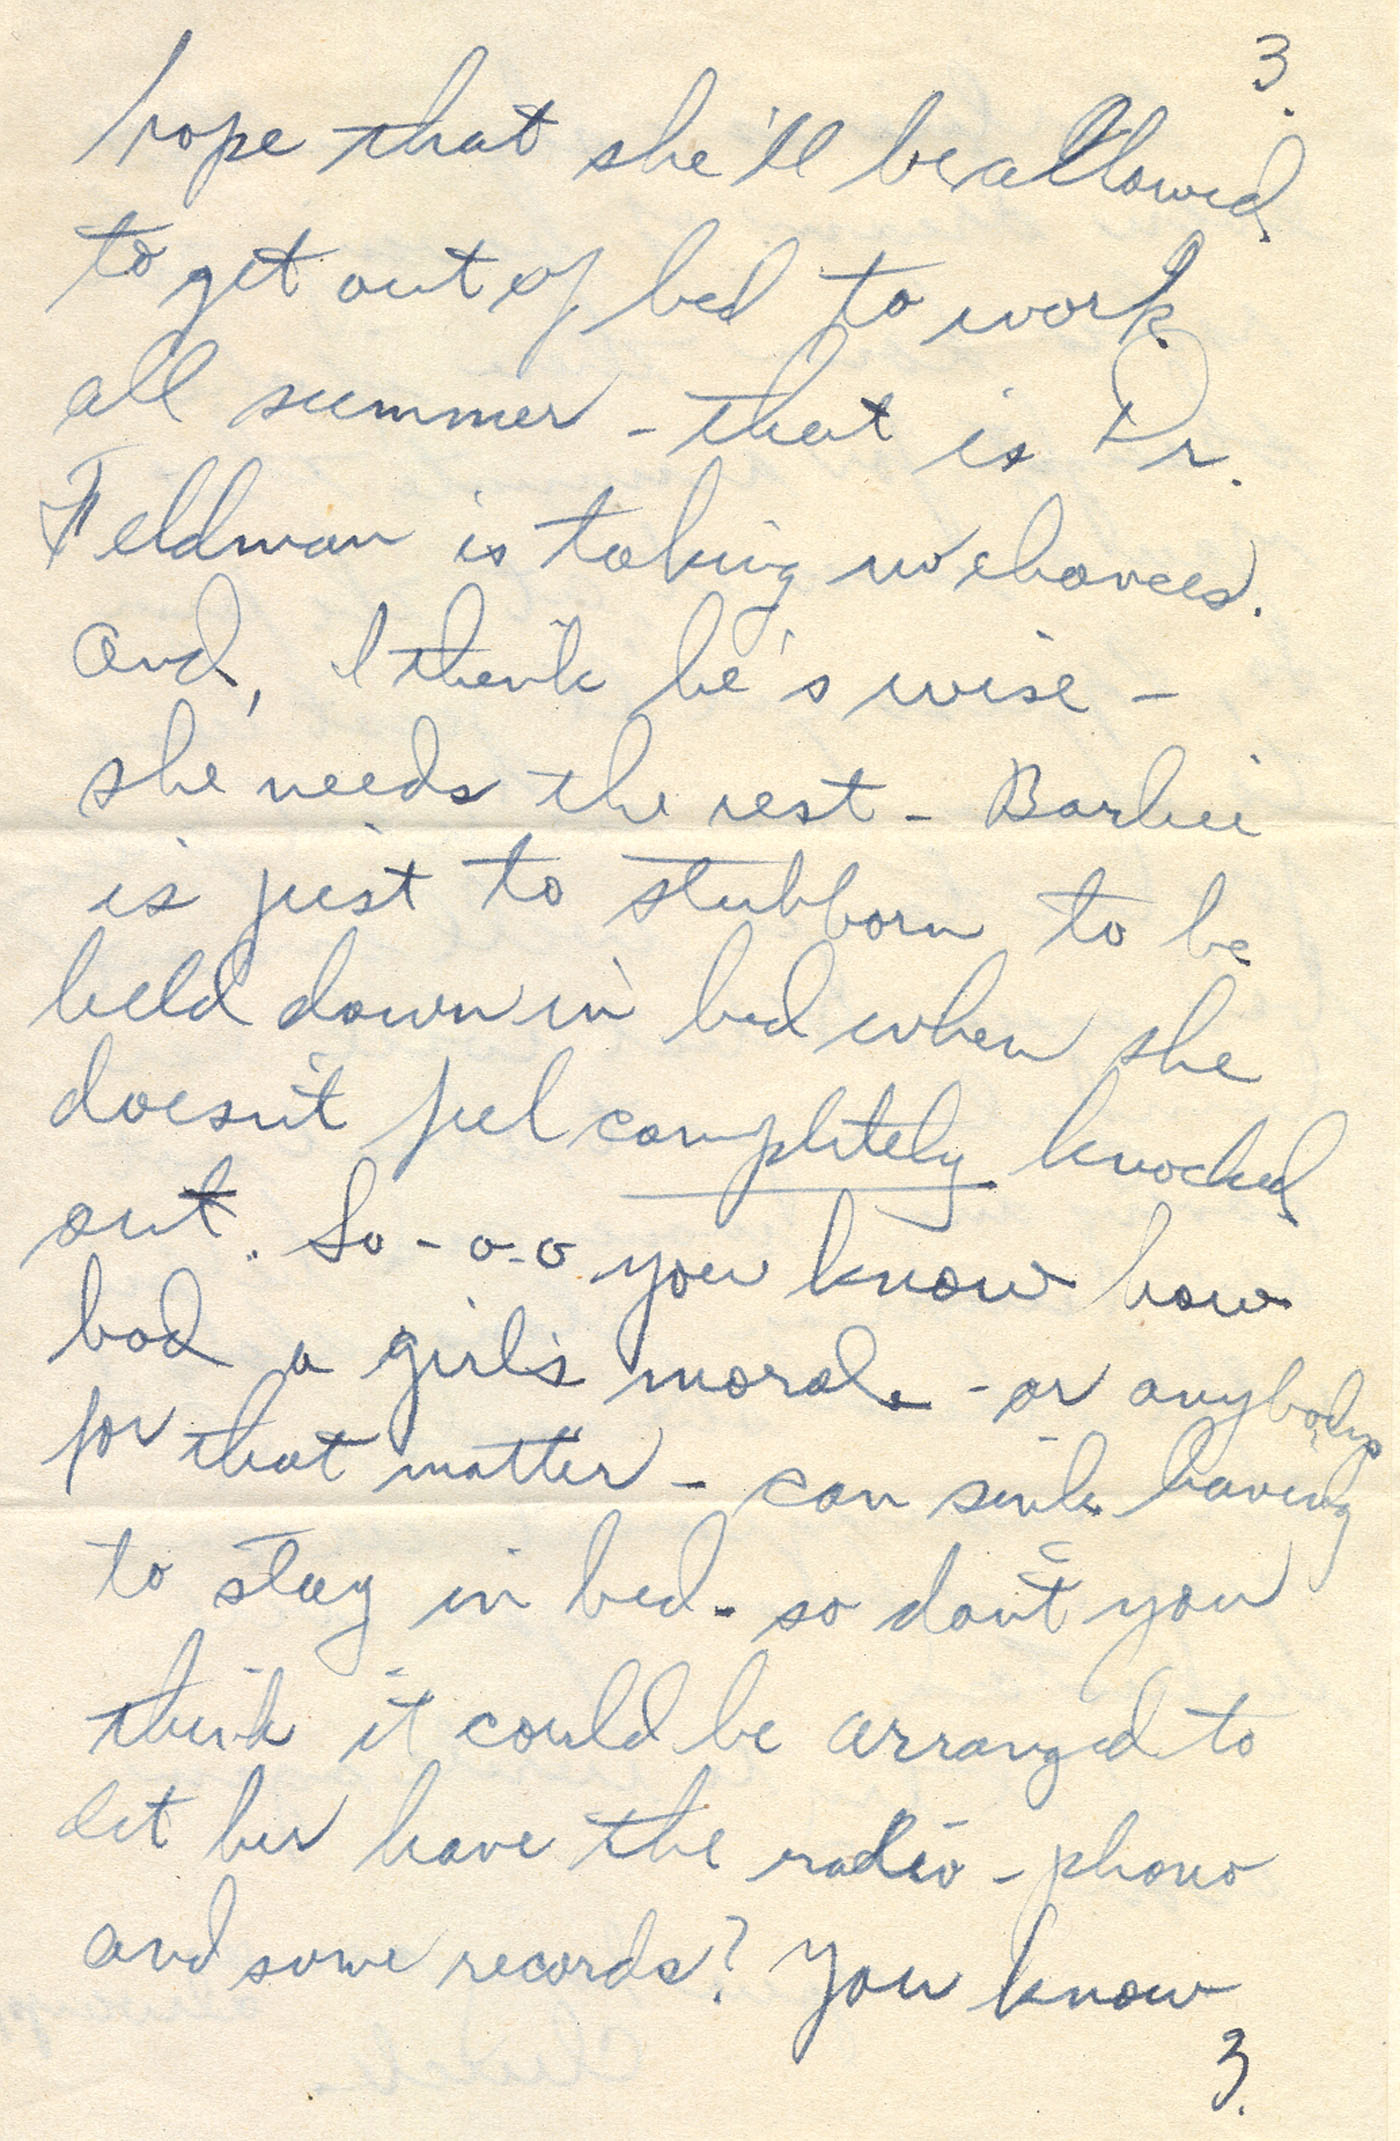 3.
hope that she'll be allowed
to get out of bed to work
all summer - that is Dr.
Feldman is taking no chances.
And, I think he's wise -
she needs the rest - Barbie
is just to stubborn to be
held down in bed when she
doesn't feel completely knocked
out. So-o-o you know how
bad a girl's morale - or anybodys
for that matter - can sink having
to stay in bed - so don't you
think it could be arranged to
let her have the radio - phono
and some records? You know
3.